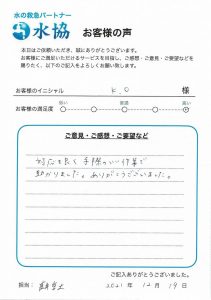 水の救急パートナー
水協 お客様の声
本日はご依頼いただき、誠にありがとうございます。
お客様にご満足いただけるサービスを目指し、ご感想・ご意見・ご要望などを
賜りたく、以下のご記入をよろしくお願い致します。
お客様のイニシャル K.O 様
お客様の満足度 低い 普通 高い
ご意見・ご感想・ご要望など
対応も良く手際のいい作業で
助かりました。ありがとうございました。
ご記入ありがとうございました。
担当: 2021年 12月 19日